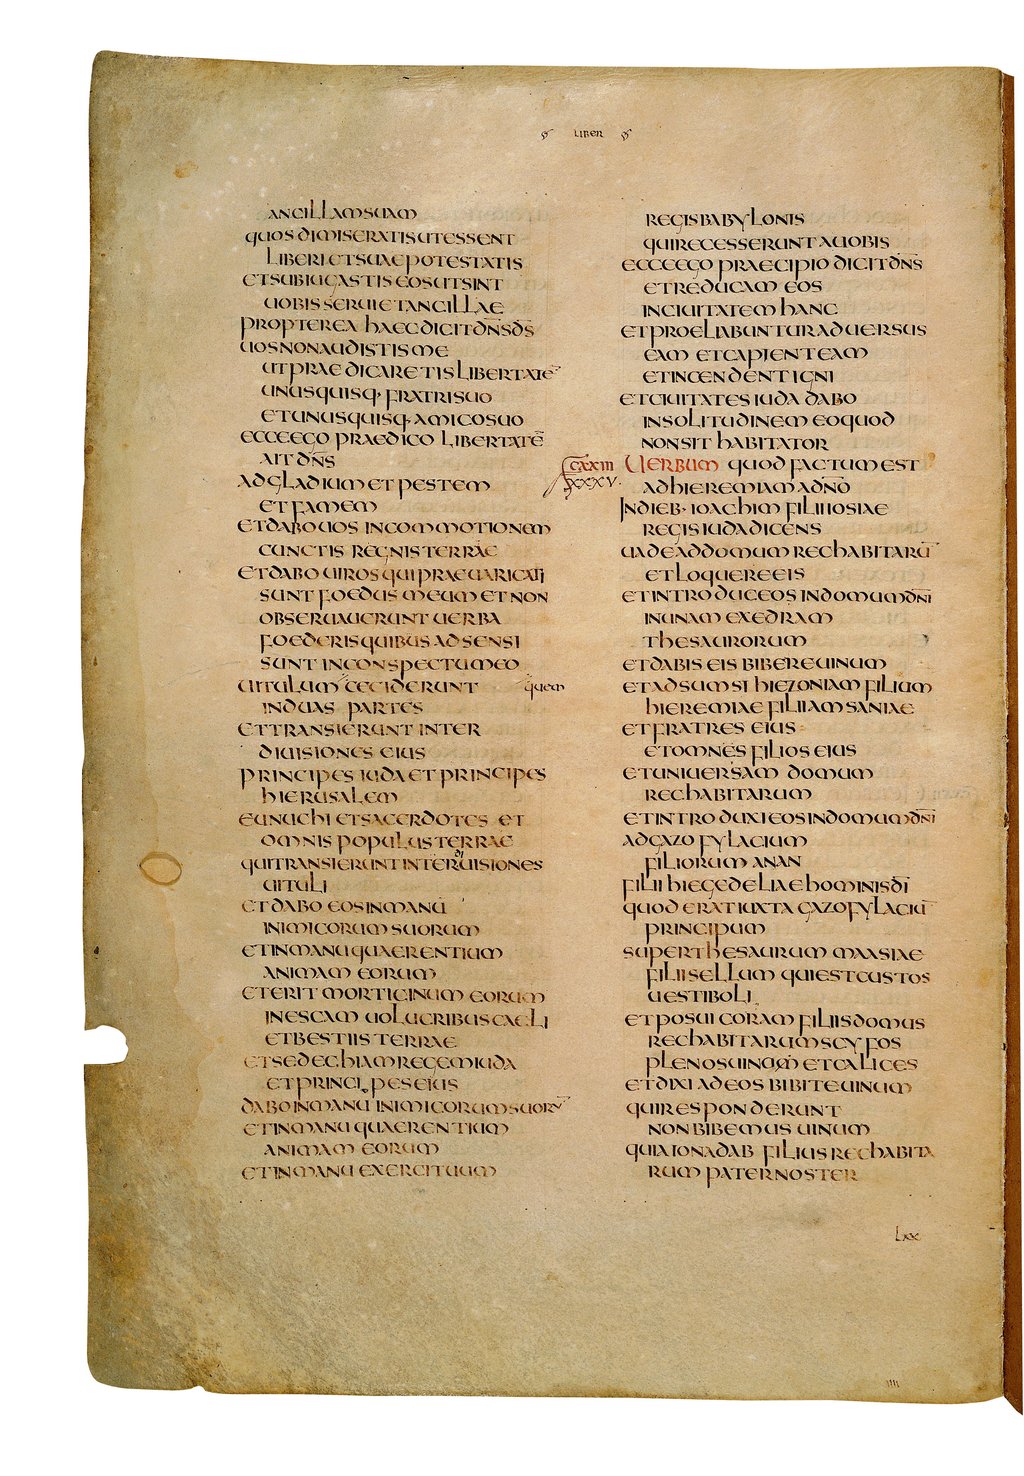 LIBER
ANCILLAM SUAM
QUOS DIMISERATIS UT ESSENT
LIBERI ET SUAE POTESTATIS
ET SUBIUGASTIS EOS UT SINT
UOBIS SERUI ET ANCILLAE
PROPTEREA HAEC DICIT DN̅S D̅S
UOS NON AUDISTIS ME
UT PRAEDICARETIS LIBERTATE̅
UNUSQUISQ· FRATRI SUO
ET UNUSQUISQ· AMICO SUO
ECCE EGO PRAEDICO LIBERTATE̅
AIT DN̅S
AD GLADIUM ET PESTEM
ET FAMEM
ET DABO UOS IN COMMOTIONEM
CUNCTIS REGNIS TERRAE
ET DABO UIROS QUI PRAEUARICATI
SUNT FOEDUS MEUM ET NON
OBSERUAUERUNT UERBA
FOEDERIS QUIBUS ADSENSI
SUNT IN CONSPECTU MEO
UITULUM CECIDERUNT quem
IN DUAS PARTES
ET TRANSIERUNT INTER
DIUISIONES EIUS
PRINCIPES IUDA ET PRINCIPES
HIERUSALEM
EUNUCHI ET SACERDOTES ET
OMNIS POPULUS TERRAE
QUI TRANSIERUNT INTER diUISIONES
UITULI
ET DABO EOS IN MANU
INIMICORUM SUORUM
ET IN MANU QUAERENTIUM
ANIMAM EORUM
ET ERIT MORTICINUM EORUM
IN ESCAM UOLUCRIBUS CAELI
ET BESTIIS TERRAE
ET SEDECHIAM REGEM IUDA
ET PRINCIPES EIUS
DABO IN MANU INIMICORUM SUORU̅
ET IN MANU QUAERENTIUM
ANIMAM EORUM
ET IN MANU EXERCITUUM
REGIS BABYLONIS
QUI RECESSERUNT A UOBIS
ECCE EGO PRAECIPIO DICIT DN̅S
ET REDUCAM EOS
IN CIUITATEM HANC
ET PROELIABUNTUR ADUERSUS
EAM ET CAPIENT EAM
ET INCENDENT IGNI
ET CIUITATES IUDA DABO
IN SOLITUDINEM EO QUOD
NON SIT HABITATOR
CXXIII UERBUM QUOD FACTUM EST
XXXV· AD HIEREMIAM A DN̅O
IN DIEB· IOACHIM FILII IOSIAE
REGIS IUDA DICENS
UADE AD DOMUM RECHABITARU̅
ET LOQUERE EIS
ET INTRODUCE EOS IN DOMUM DN̅I
IN UNAM EXEDRAM
THESAURORUM
ET DABIS EIS BIBERE UINUM
ET ADSUMSI HIEZONIAM FILIUM
HIEREMIAE FILII AMSANIAE
ET FRATRES EIUS
ET OMNES FILIOS EIUS
ET UNIUERSAM DOMUM
RECHABITARUM
ET INTRODUXI EOS IN DOMUM DN̅I
AD GAZOFYLACIUM
FILIORUM ANAN
FILII HIEGEDELIAE HOMINIS D̅I
QUOD ERAT IUXTA GAZOFYLACIU̅
PRINCIPUM
SUPER THESAURUM MAASIAE
FILII SELLUM QUI EST CUSTOS
UESTIBOLI
ET POSUI CORAM FILIIS DOMUS
RECHABITARUM SCYFOS
PLENOS UINO ET CALICES
ET DIXI AD EOS BIBITE UINUM
QUI RESPONDERUNT
NON BIBEMUS UINUM
QUIA IONADAB FILIUS RECHABITA
RUM PATER NOSTER
Lxx